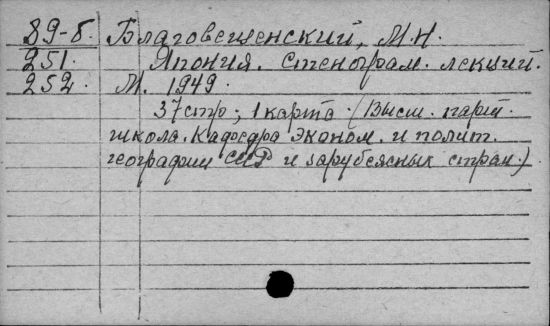 89-б. Благовещенский, М.Н.
251. Япония. Стенограм. лекций.
252. М. 1949.
37 стр; 1 карта. (Высш. парт.
школа. Кафедра эконом. и полит.
географии СССР и зарубежных стран.)